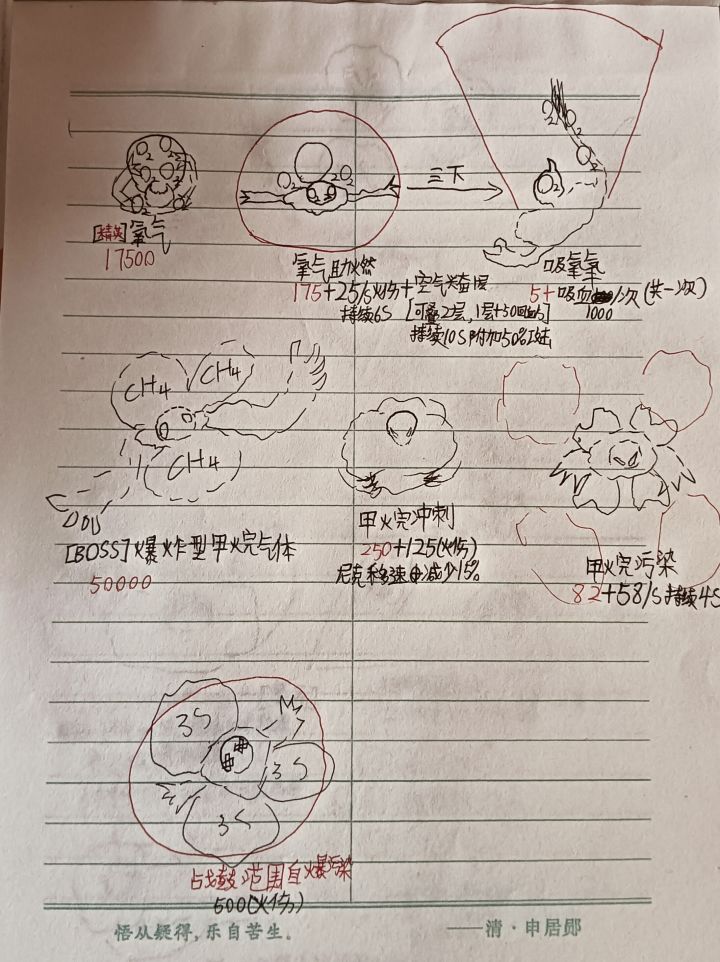 O₂ O₂
O₂ O₂
O₂ O₂
[精英]氧气
17500
O₂ O₂
氧气助燃
175+25/s(火伤)+空气兴奋层
持续6S
[可叠2层,1层+50回血/s]
持续10S附加50%
三下
O₂
O₂
O₂
O₂
吸氧氧
5+吸血/次(共一次)
1000
CH4
CH4
CH4
[BOSS]爆炸型甲烷气体
50000
甲烷冲刺
250+125(火伤)
尼克移速减少15%
甲烷污染
82+58/s持续4S
3S
3S
3S
占鼓范围自爆污染
500(火伤)
悟从疑得,乐自苦生。
——清·申居郧